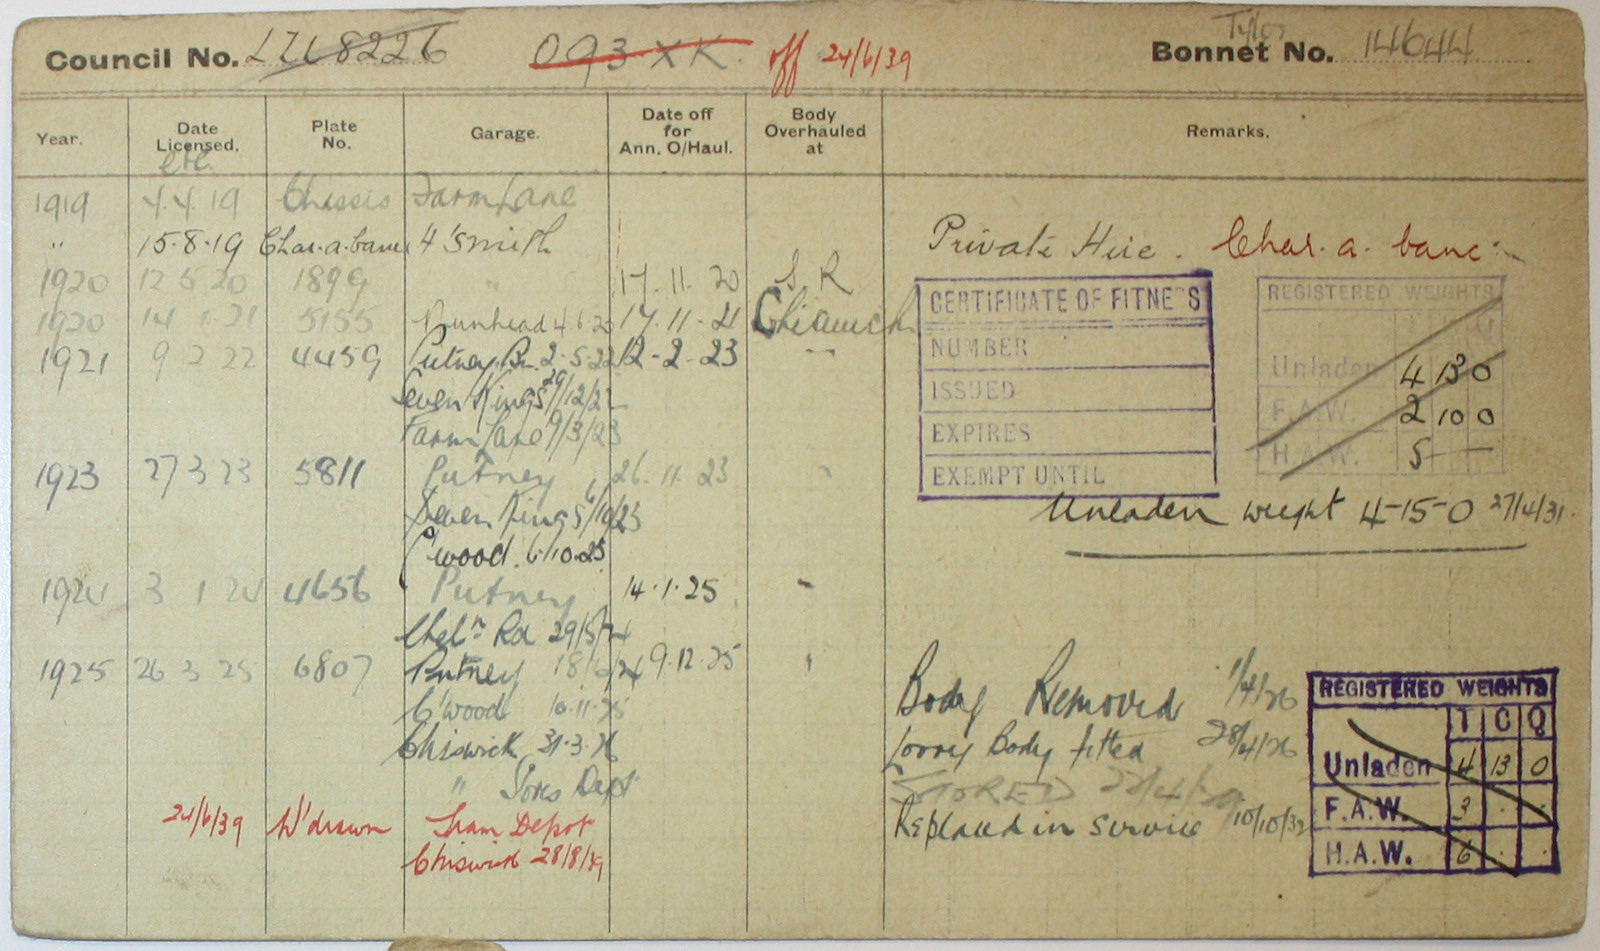 Council No. LU 8226 093 XK. off 24/6/39 Bonnet No. 14644
Year. Date Licensed. Plate No. Garage. Date off for Ann. O/Haul. Body Overhauled at Remarks.
1919 4.4.19 Chassis Farm Lane
" 15.8.19 Char.a.banc H'Smith Private Hire. Char. a. banc.
1920 12 5 20 1899 " 17.11.20
1920 14 1 21 5155 Nunhead 4.6.20 17.11.21 Chiswick
1921 9 2 22 4459 Putney Bn. 2-5-22 12-2-23 "
Seven Kings 29/12/22
Farm Lane 9/3/23
CERTIFICATE OF FITNESS
NUMBER
ISSUED
EXPIRES
EXEMPT UNTIL
REGISTERED WEIGHTS
T C Q
Unladen 4 13 0
F.A.W. 2 10 0
H.A.W. 5 —
Unladen weight 4-15-0 27/4/31.
1923 27 3 23 5811 Putney 26.11.23 "
Seven Kings 6/10/23
C'wood. 6.10.25
1924 3 1 24 4656 Putney 14.1.25 "
Chel'n Rd 29/5/24
1925 26 3 25 6807 Putney 9.12.25 "
C'wood 10.11.25
Chiswick 31.3.26
" Stores Dept
Body Removed 1/4/26
Lorry Body fitted 28/4/26
STORED
Replaced in service 10/10/32
REGISTERED WEIGHTS
T C Q
Unladen 4 13 0
F.A.W. 3 . .
H.A.W. 6 . .
24/6/39 W'drawn Tram Depot
Chiswick 28/8/39